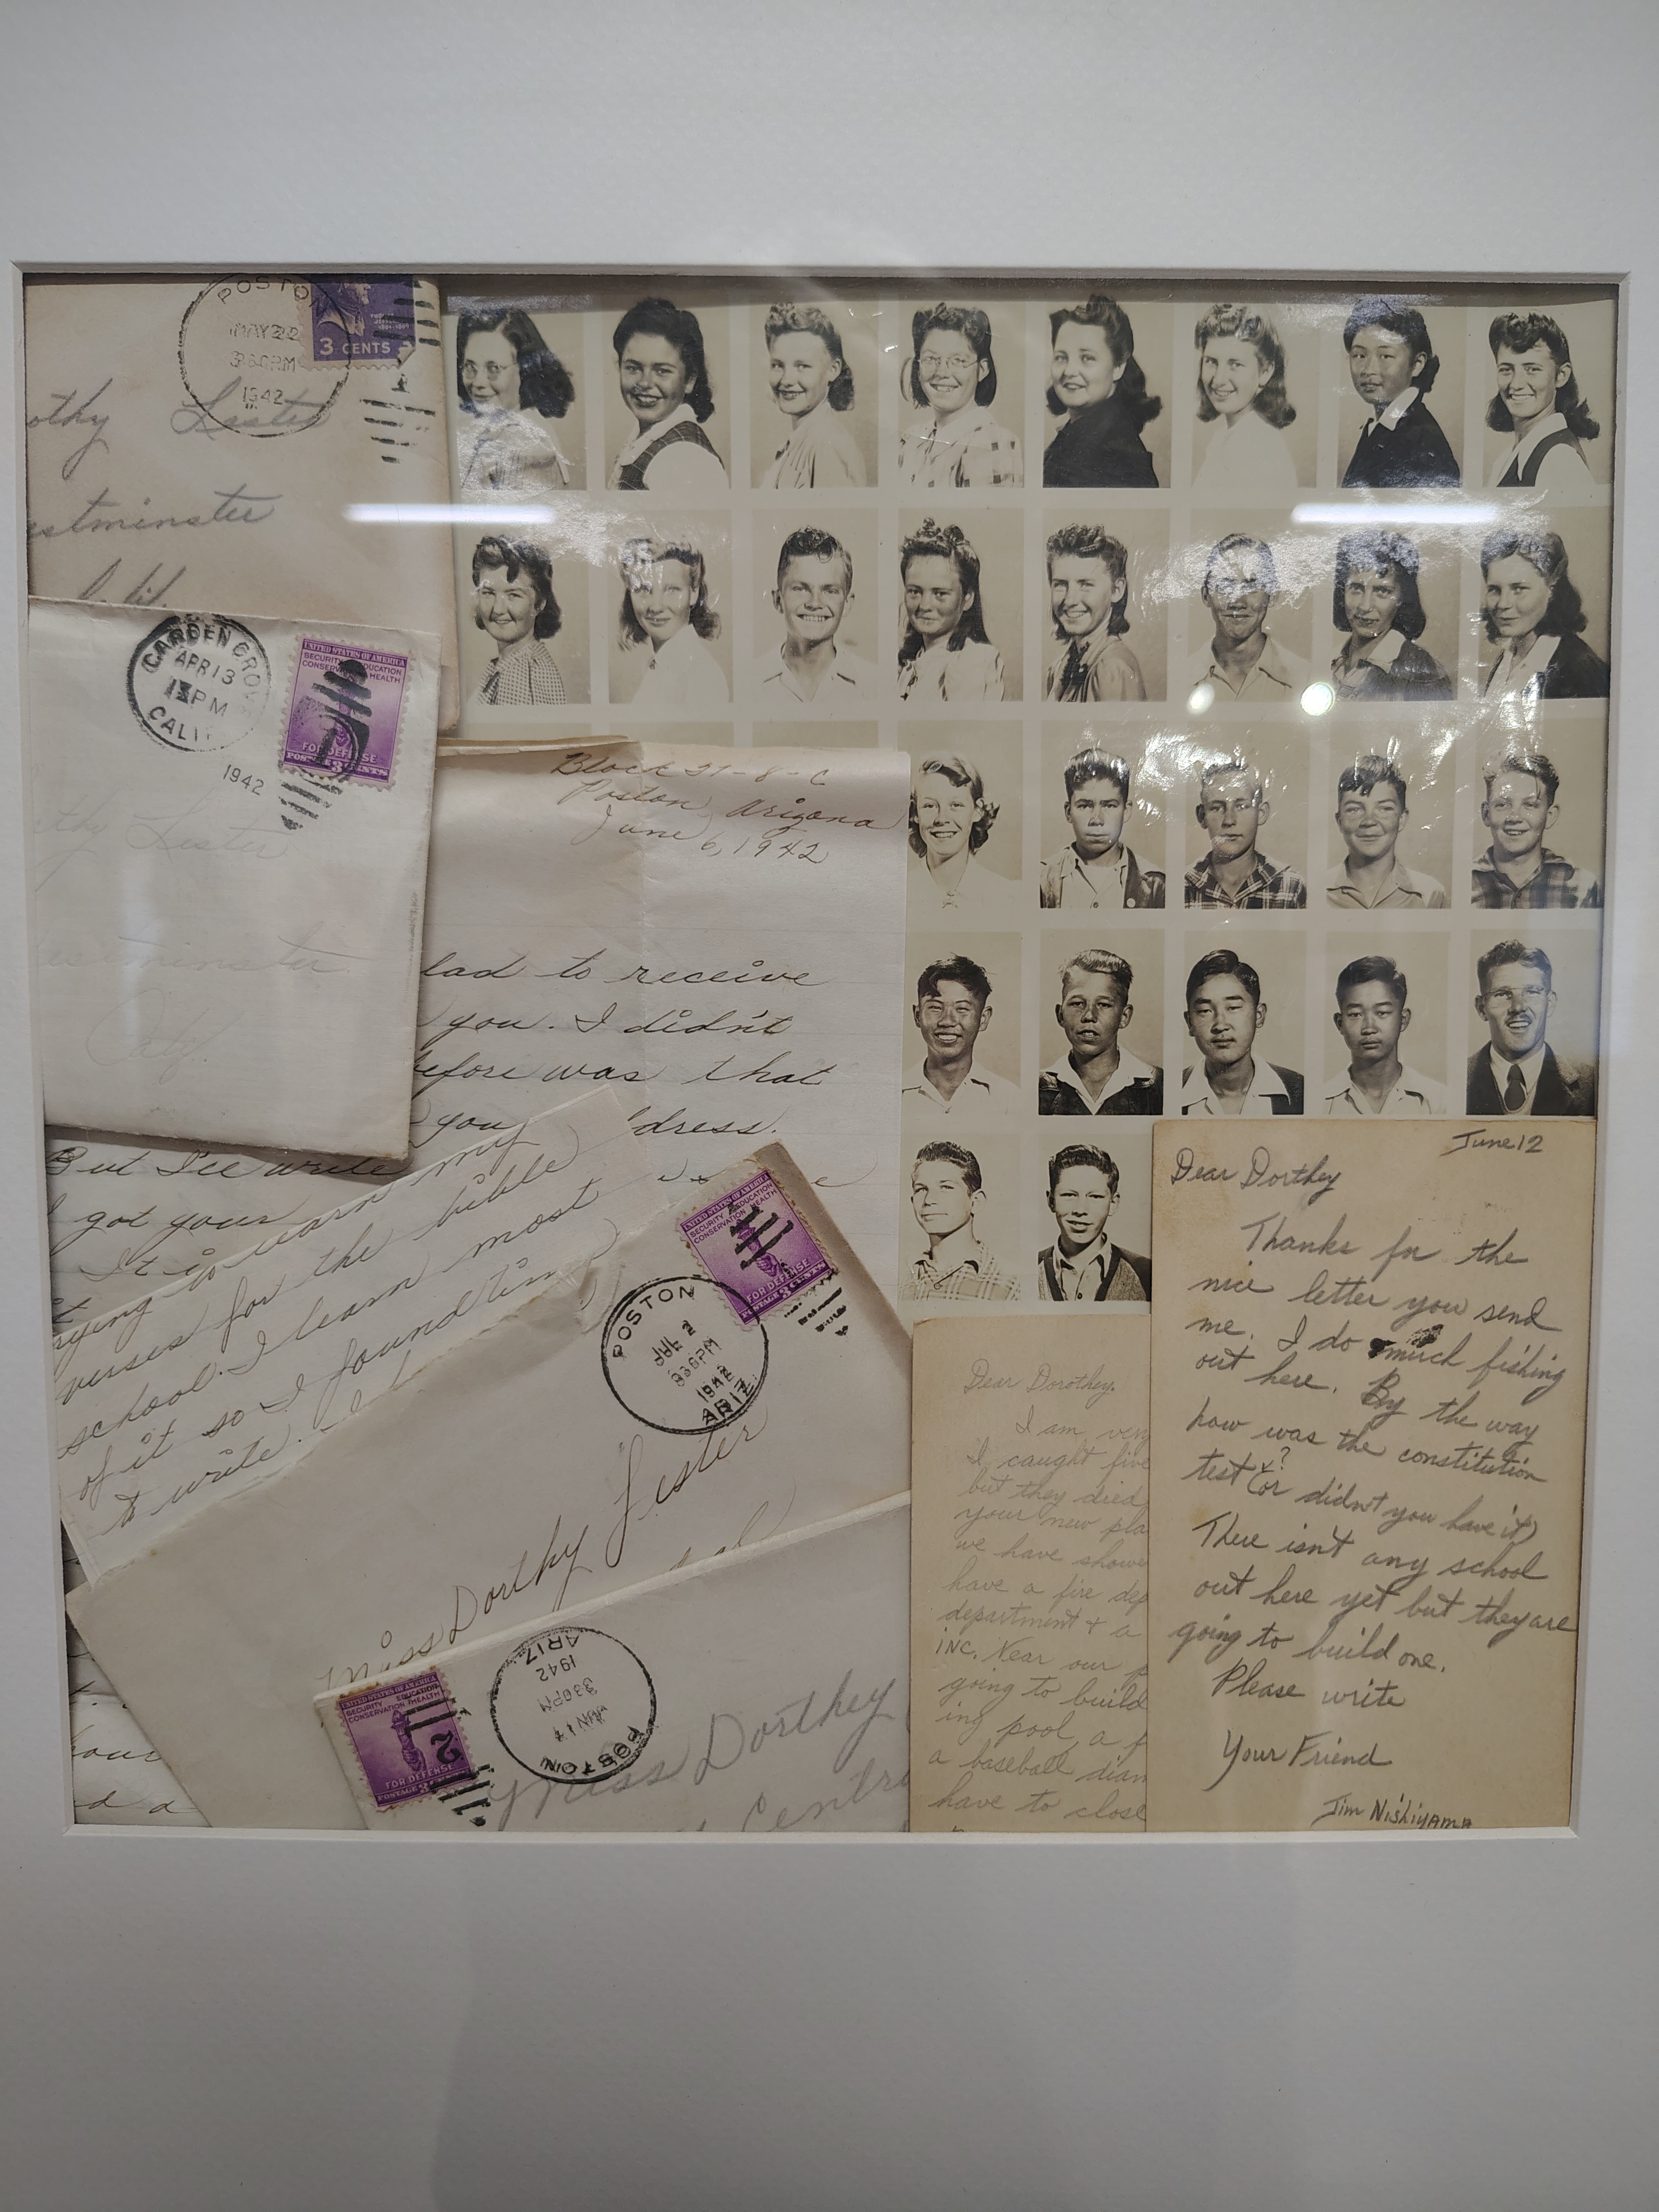 POSTON
MAY 22
1942
3 CENTS
othy Lester
estminster
GARDEN GROVE
APR 13
PM
CALIF
1942
UNITED STATES OF AMERICA
SECURITY EDUCATION
CONSERVATION HEALTH
FOR DEFENSE
POSTAGE 3 CENTS
thy Lester
estminster
Calif.
Poston, Arizona
June 6, 1942
lad to receive
you. I didn't
efore was that
you dress.
But I'll write
I got your
It is warm
rying to learn my
verses for the bible
school. I learn most
of it so I found time
to write.
UNITED STATES OF AMERICA
SECURITY EDUCATION
CONSERVATION HEALTH
FOR DEFENSE
POSTAGE 3 CENTS
POSTON
JUL 2
330 PM
1942
ARIZ
Miss Dorthy Lester
UNITED STATES OF AMERICA
SECURITY EDUCATION
CONSERVATION HEALTH
FOR DEFENSE
POSTAGE 3 CENTS
POSTON
JUN 17
330 PM
1942
ARIZ
Miss Dorthey
Centra
Dear Dorothey.
I am very
I caught five
but they died
your new pla
we have show
have a fire dep
department & a
INC. Near our p
going to build
ing pool, a f
a baseball diam
have to close
June 12
Dear Dorthey
Thanks for the
nice letter you send
me. I do much fishing
out here. By the way
how was the constitution
test? (or didn't you have it)
There isn't any school
out here yet but they are
going to build one.
Please write
Your Friend
Jim Nishiyama